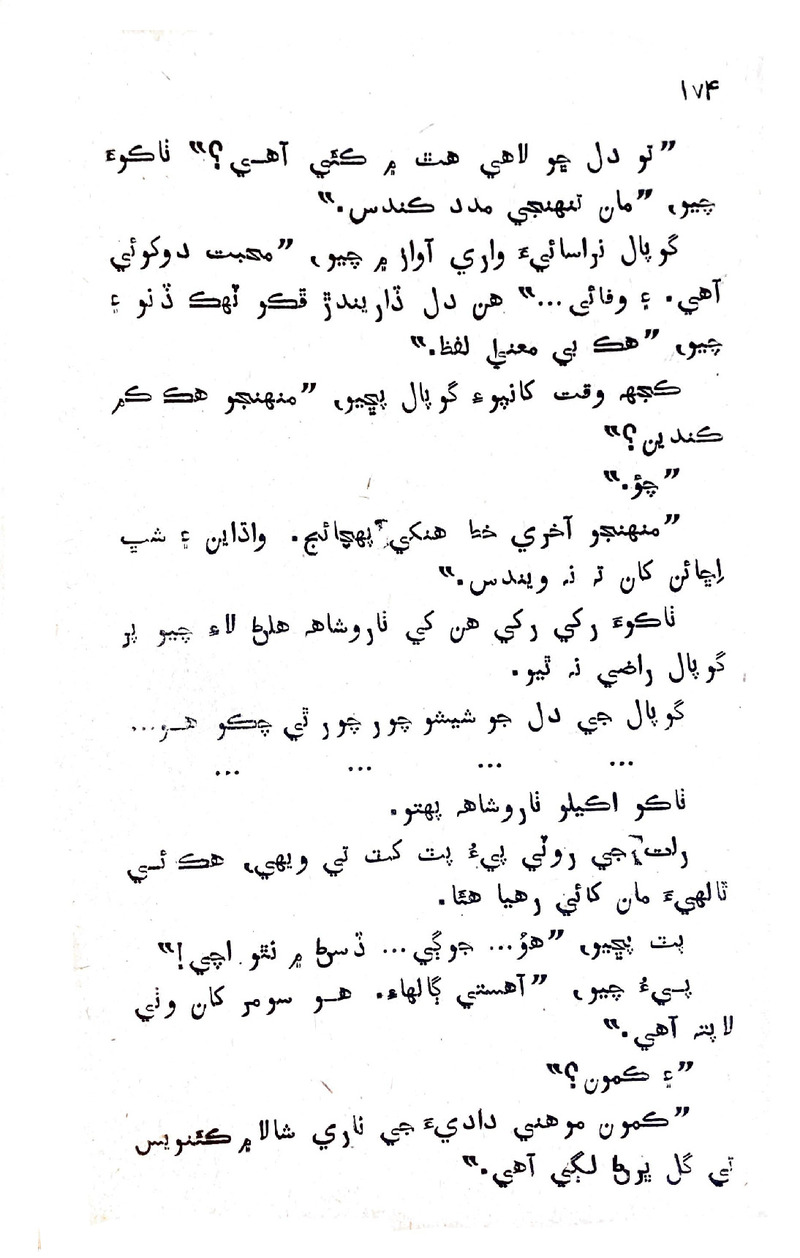 ۱۷۴
”تو دل ڇو لاهي هٿ ۾ کڻي آهي؟“ ٺاڪوءَ
چيو، ”مان تنهنجي مدد ڪندس.“
گوپال نراسائيءَ واري آواز ۾ چيو، ”محبت دوکوئي
آهي. ۽ وفائي...“ هن دل ڏاريندڙ ڦڪو ٽهڪ ڏنو ۽
چيو، ”هڪ بي معنيٰ لفظ.“
ڪجهہ وقت کانپوءِ گوپال پڇيو، ”منهنجو هڪ ڪم
ڪندين؟“
”چؤ.“
”منهنجو آخري خط هنکي پهچائج. واڌاين ۽ شڀ
اِڇائن کان تہ نہ ويندس.“
ٺاڪوءَ رکي رکي هن کي ٺاروشاهہ هلڻ لاءِ چيو پر
گوپال راضي نہ ٿيو.
گوپال جي دل جو شيشو چور چور ٿي چڪو هو...
... ... ... ...
ٺاڪو اڪيلو ٺاروشاهہ پهتو.
رات جي روٽي پيءُ پٽ کٽ تي ويهي، هڪ ئي
ٿالهيءَ مان کائي رهيا هئا.
پٽ پڇيو، ”هؤ... جوڳي... ڏسڻ ۾ نٿو اچي!“
پيءُ چيو، ”آهستي ڳالهاءِ. هو سومر کان وٺي
لاپتہ آهي.“
”۽ ڪمون؟“
”ڪمون موهني داديءَ جي ناري شالا ۾ ڪئنويس
تي گل ڀرڻ لڳي آهي.“